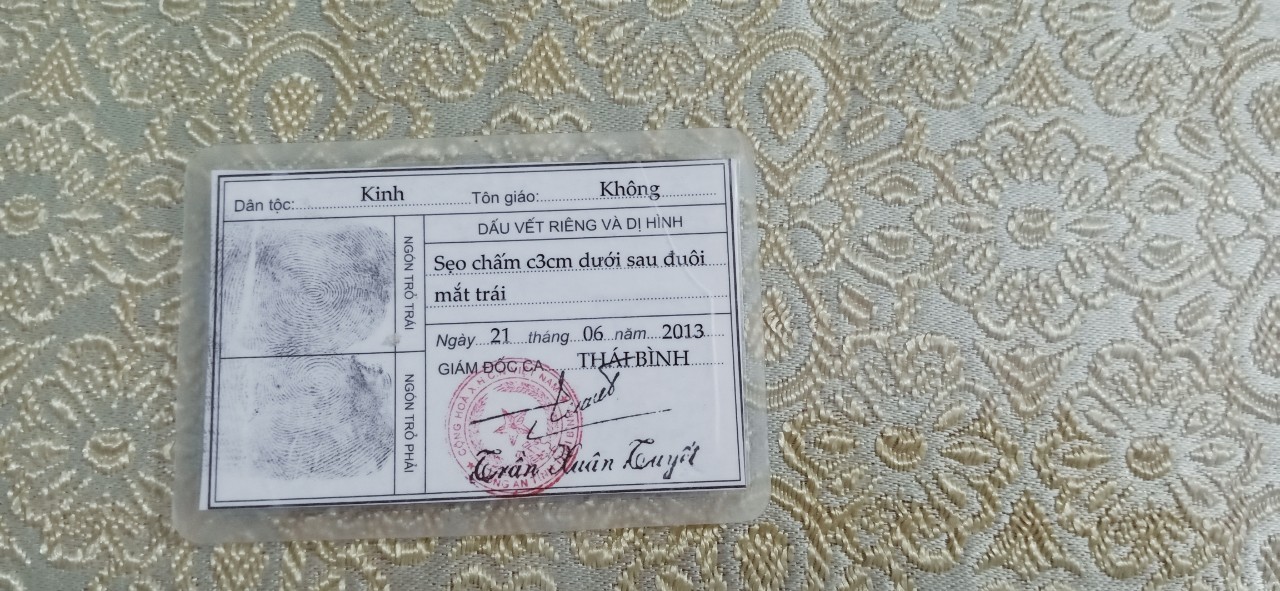 Dân tộc: Kinh Tôn giáo: Không
NGÓN TRỎ TRÁI
NGÓN TRỎ PHẢI
DẤU VẾT RIÊNG VÀ DỊ HÌNH
Sẹo chấm c3cm dưới sau đuôi
mắt trái
Ngày 21 tháng 06 năm 2013
GIÁM ĐỐC CA THÁI BÌNH
CỘNG HOÀ X.H.C.N VIỆT NAM
CÔNG AN TỈNH
Trần Xuân Tuyết